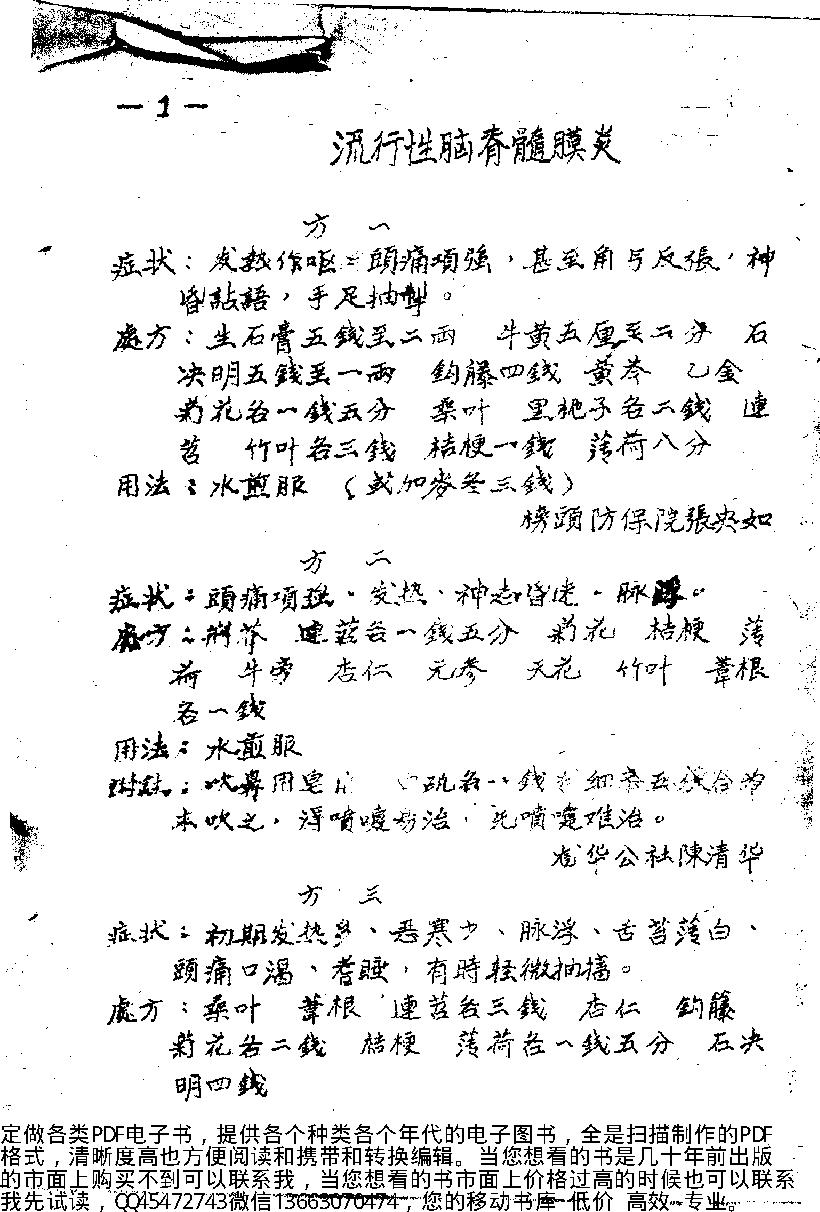 —1—
流行性脑脊髓膜炎
方 一
症状：发热作呕 頭痛項強，甚至角弓反張，神
昏詀語，手足抽掣。
處方：生石膏五錢至二両 牛黄五厘至二分 石
决明五錢至一両 鈎藤四錢 黄芩 乙金
菊花各一錢五分 桑叶 黑栀子各二錢 連
苕 竹叶各三錢 桔梗一錢 薄荷八分
用法：水煎服（或加麥冬三錢）
榜頭防保院張央如
方 二
症状：頭痛項强、发热、神志昏迷、脉浮。
處方：荆芥 連苕各一錢五分 菊花 桔梗 薄
荷 牛旁 杏仁 元參 天花 竹叶 葦根
各一錢
用法：水煎服
吹鼻用皂 矾各一錢 細辛五錢合为
末吹之，得噴嚏易治，无噴嚏难治。
龙华公社陳清华
方 三
症状：初期发热多、恶寒少、脉浮、舌苔薄白、
頭痛口渴、嗜睡，有時轻微抽搐。
處方：桑叶 葦根 連苕各三錢 杏仁 鈎籐
菊花各二錢 桔梗 薄荷各一錢五分 石决
明四錢
定做各类PDF电子书，提供各个种类各个年代的电子图书，全是扫描制作的PDF
格式，清晰度高也方便阅读和携带和转换编辑。当您想看的书是几十年前出版
的市面上购买不到可以联系我，当您想看的书市面上价格过高的时候也可以联系
我先试读，QQ45472743微信13663070474，您的移动书库-低价 高效--专业。